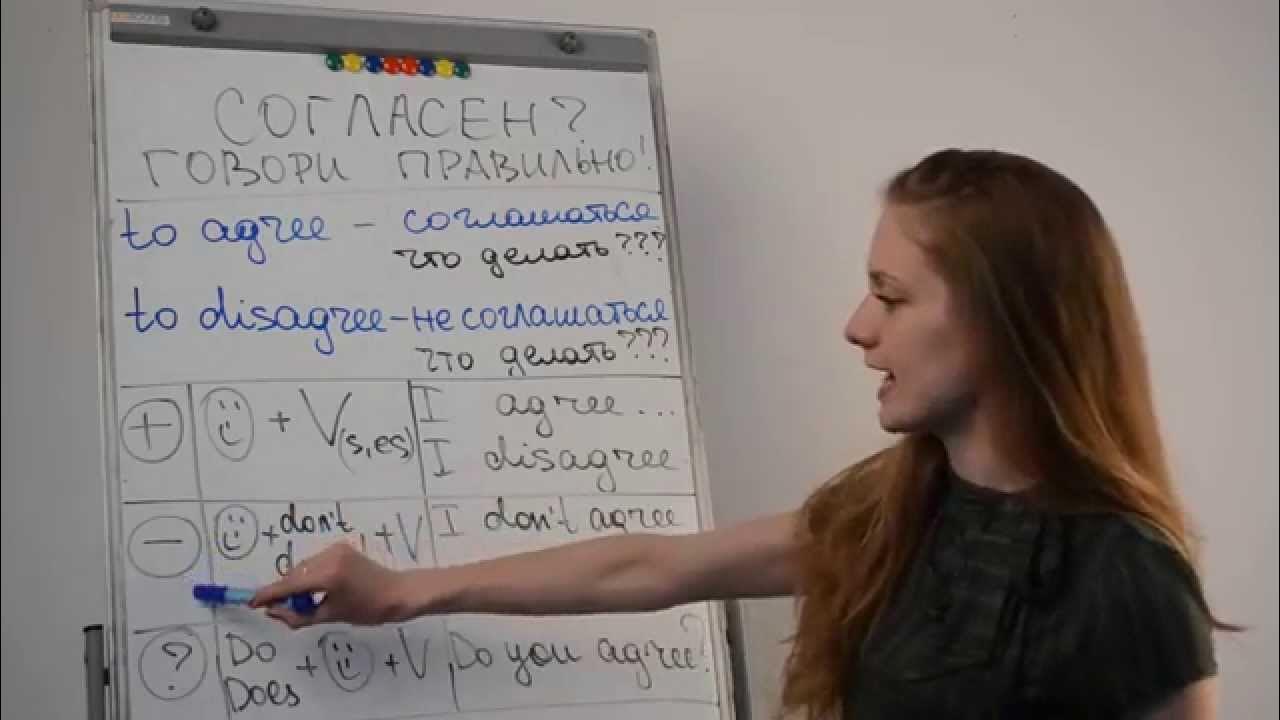 СОГЛАСЕН?
ГОВОРИ ПРАВИЛЬНО!
to agree - соглашаться
что делать???
to disagree - не соглашаться
что делать???
+ + V(s,es) I agree...
I disagree
- + don't + V I don't agree
? Do Does + + V Do you agree?